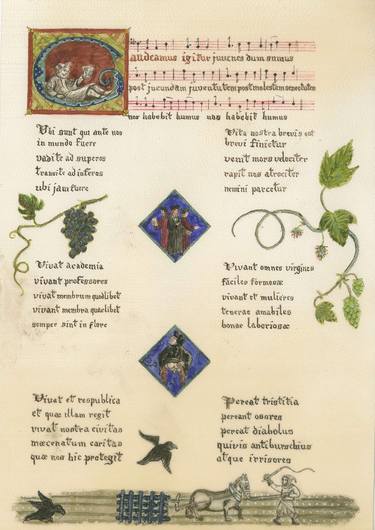 Gaudeamus igitur juvenes dum sumus
post jucundam juventutem post molestam senectutem
nos habebit humus nos habebit humus
Ubi sunt qui ante nos
in mundo fuere
vadite ad superos
transite ad inferos
ubi jam fuere
Vita nostra brevis est
brevi finietur
venit mors velociter
rapit nos atrociter
nemini parcetur
Vivat academia
vivant professores
vivat membrum quodlibet
vivant membra quaelibet
semper sint in flore
Vivant omnes virgines
faciles formosae
vivant et mulieres
tenerae amabiles
bonae laboriosae
Vivat et respublica
et quae illam regit
vivat nostra civitas
maecenatum caritas
quae nos hic protegit
Pereat tristitia
pereant osores
pereat diabolus
quivis antiburschius
atque irrisores